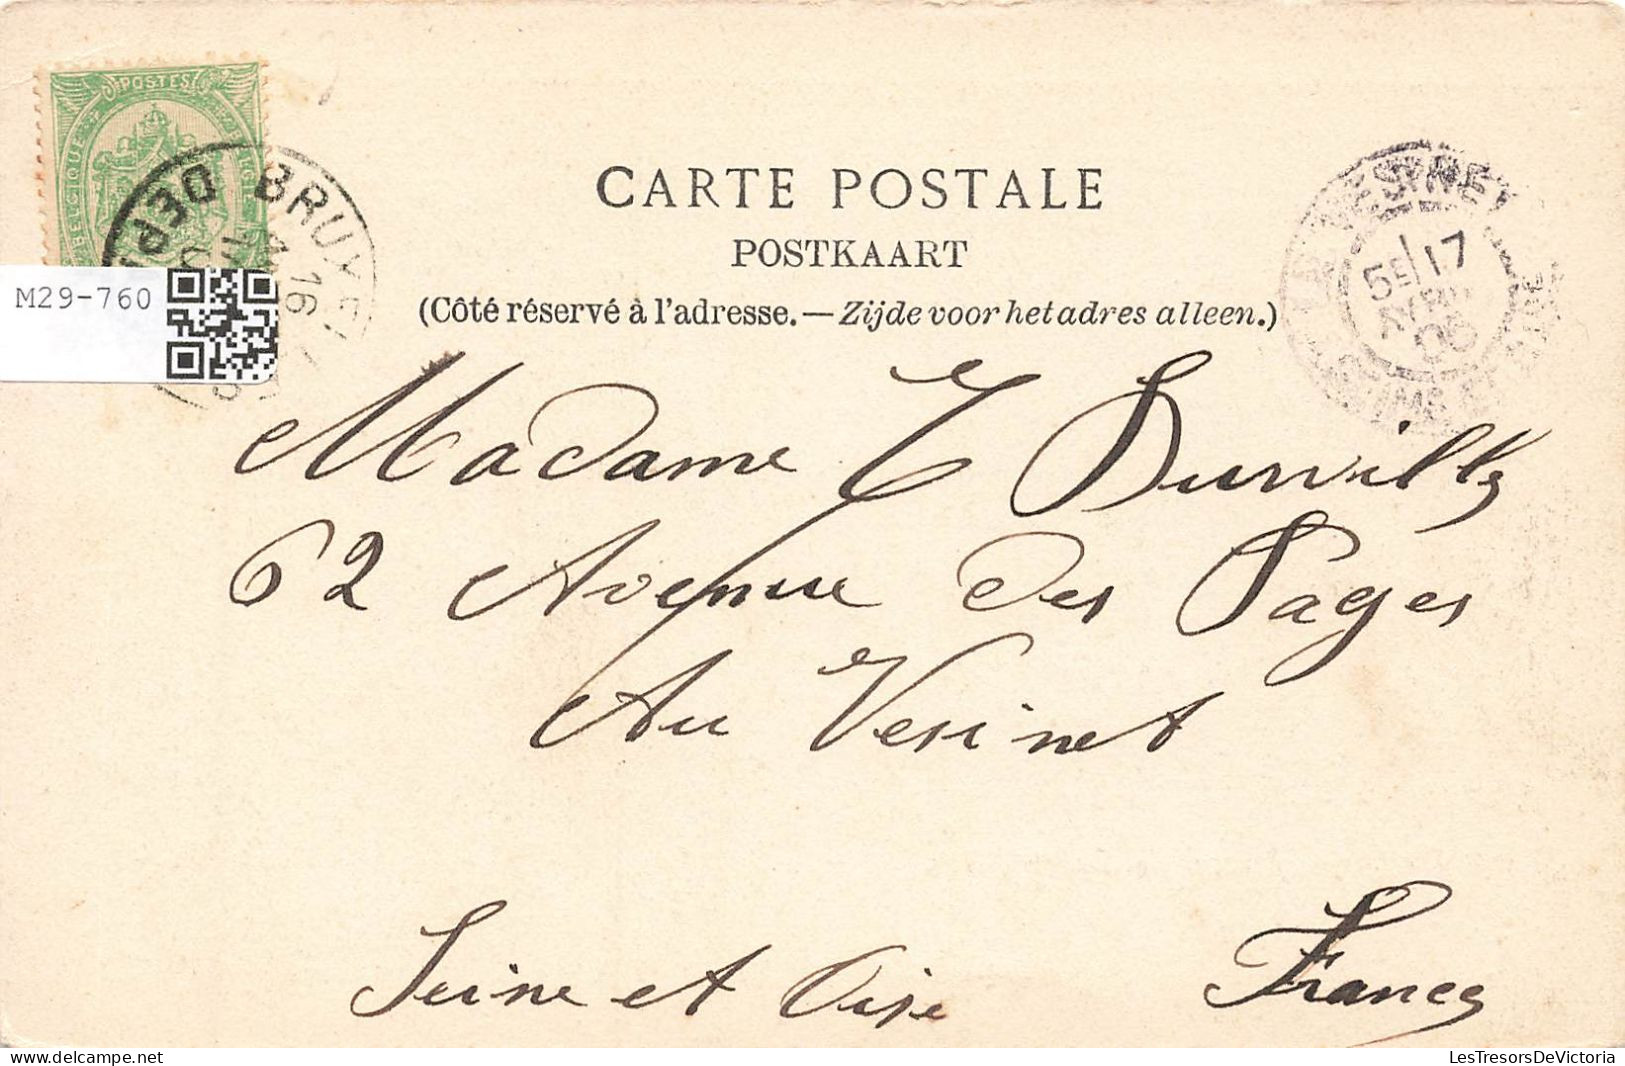 POSTES
BELGIQUE
BRUXELLES
DEPART
16
M29-760
CARTE POSTALE
POSTKAART
(Côté réservé à l'adresse.—Zijde voor het adres alleen.)
LE VESINET
5E 17
AVRIL
06
SEINE ET OISE
Madame E Durville
62 Avenue des Pages
Au Vesinet
Seine et Oise France
LesTresorsDeVictoria